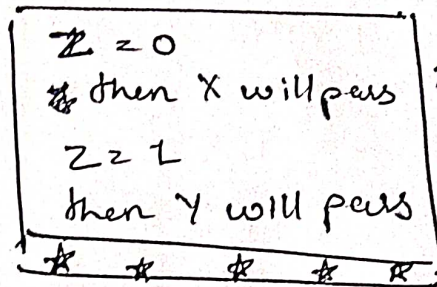 Z = 0
then X will pass
Z = 1
then Y will pass